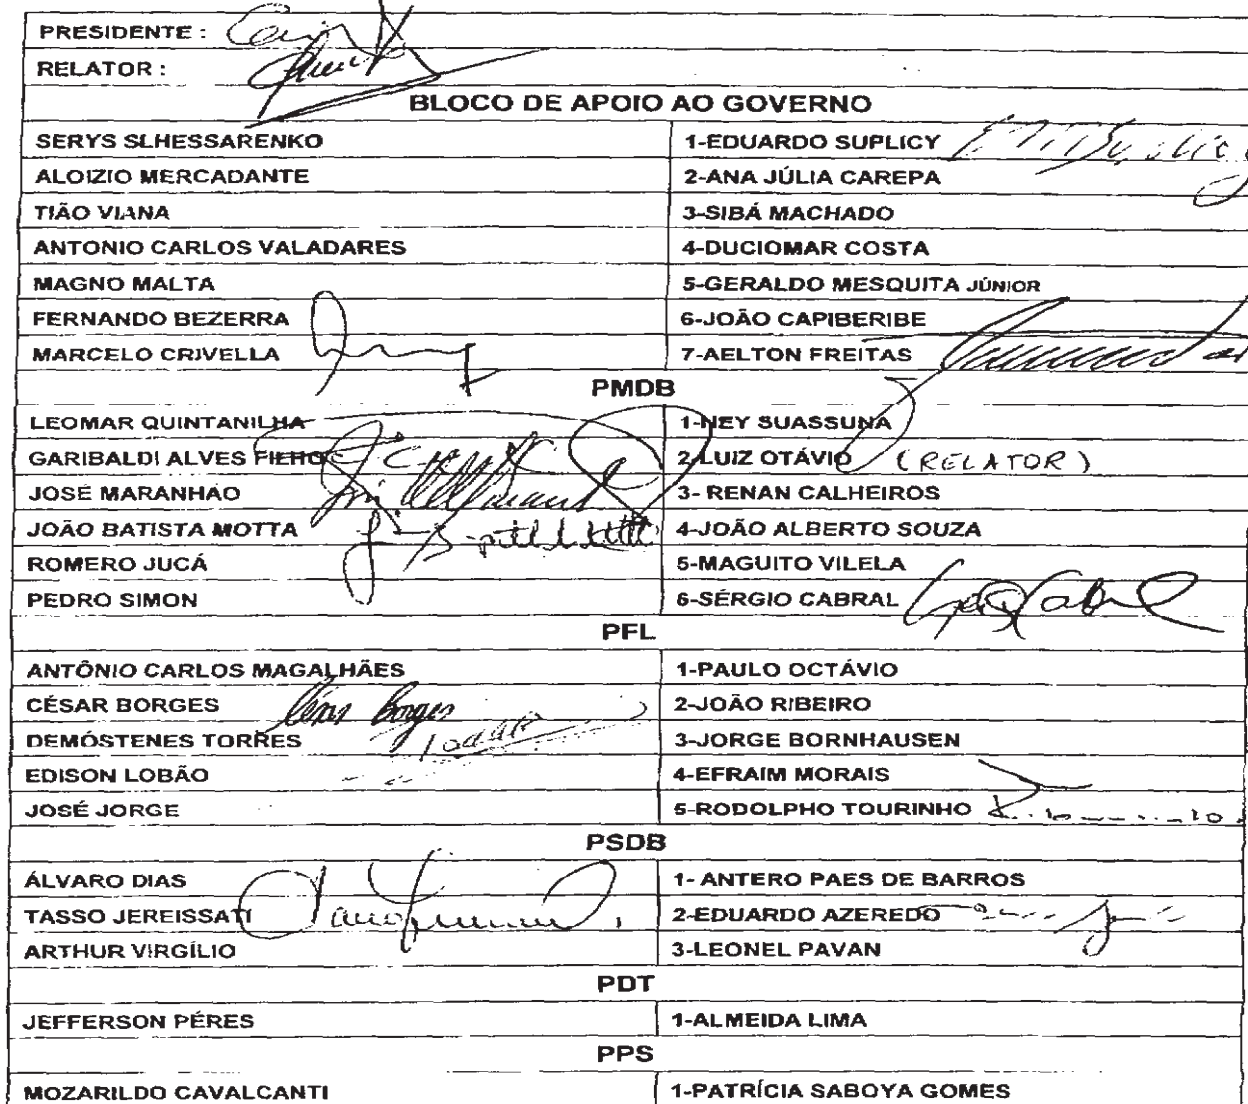 PRESIDENTE :
RELATOR :
BLOCO DE APOIO AO GOVERNO
SERYS SLHESSARENKO 1-EDUARDO SUPLICY
ALOIZIO MERCADANTE 2-ANA JÚLIA CAREPA
TIÃO VIANA 3-SIBÁ MACHADO
ANTONIO CARLOS VALADARES 4-DUCIOMAR COSTA
MAGNO MALTA 5-GERALDO MESQUITA JÚNIOR
FERNANDO BEZERRA 6-JOÃO CAPIBERIBE
MARCELO CRIVELLA 7-AELTON FREITAS
PMDB
LEOMAR QUINTANILHA 1-NEY SUASSUNA
GARIBALDI ALVES FILHO 2-LUIZ OTÁVIO (RELATOR)
JOSÉ MARANHÃO 3- RENAN CALHEIROS
JOÃO BATISTA MOTTA 4-JOÃO ALBERTO SOUZA
ROMERO JUCÁ 5-MAGUITO VILELA
PEDRO SIMON 6-SÉRGIO CABRAL
PFL
ANTÔNIO CARLOS MAGALHÃES 1-PAULO OCTÁVIO
CÉSAR BORGES César Borges 2-JOÃO RIBEIRO
DEMÓSTENES TORRES 3-JORGE BORNHAUSEN
EDISON LOBÃO 4-EFRAIM MORAIS
JOSÉ JORGE 5-RODOLPHO TOURINHO
PSDB
ÁLVARO DIAS 1- ANTERO PAES DE BARROS
TASSO JEREISSATI 2-EDUARDO AZEREDO
ARTHUR VIRGÍLIO 3-LEONEL PAVAN
PDT
JEFFERSON PÉRES 1-ALMEIDA LIMA
PPS
MOZARILDO CAVALCANTI 1-PATRÍCIA SABOYA GOMES